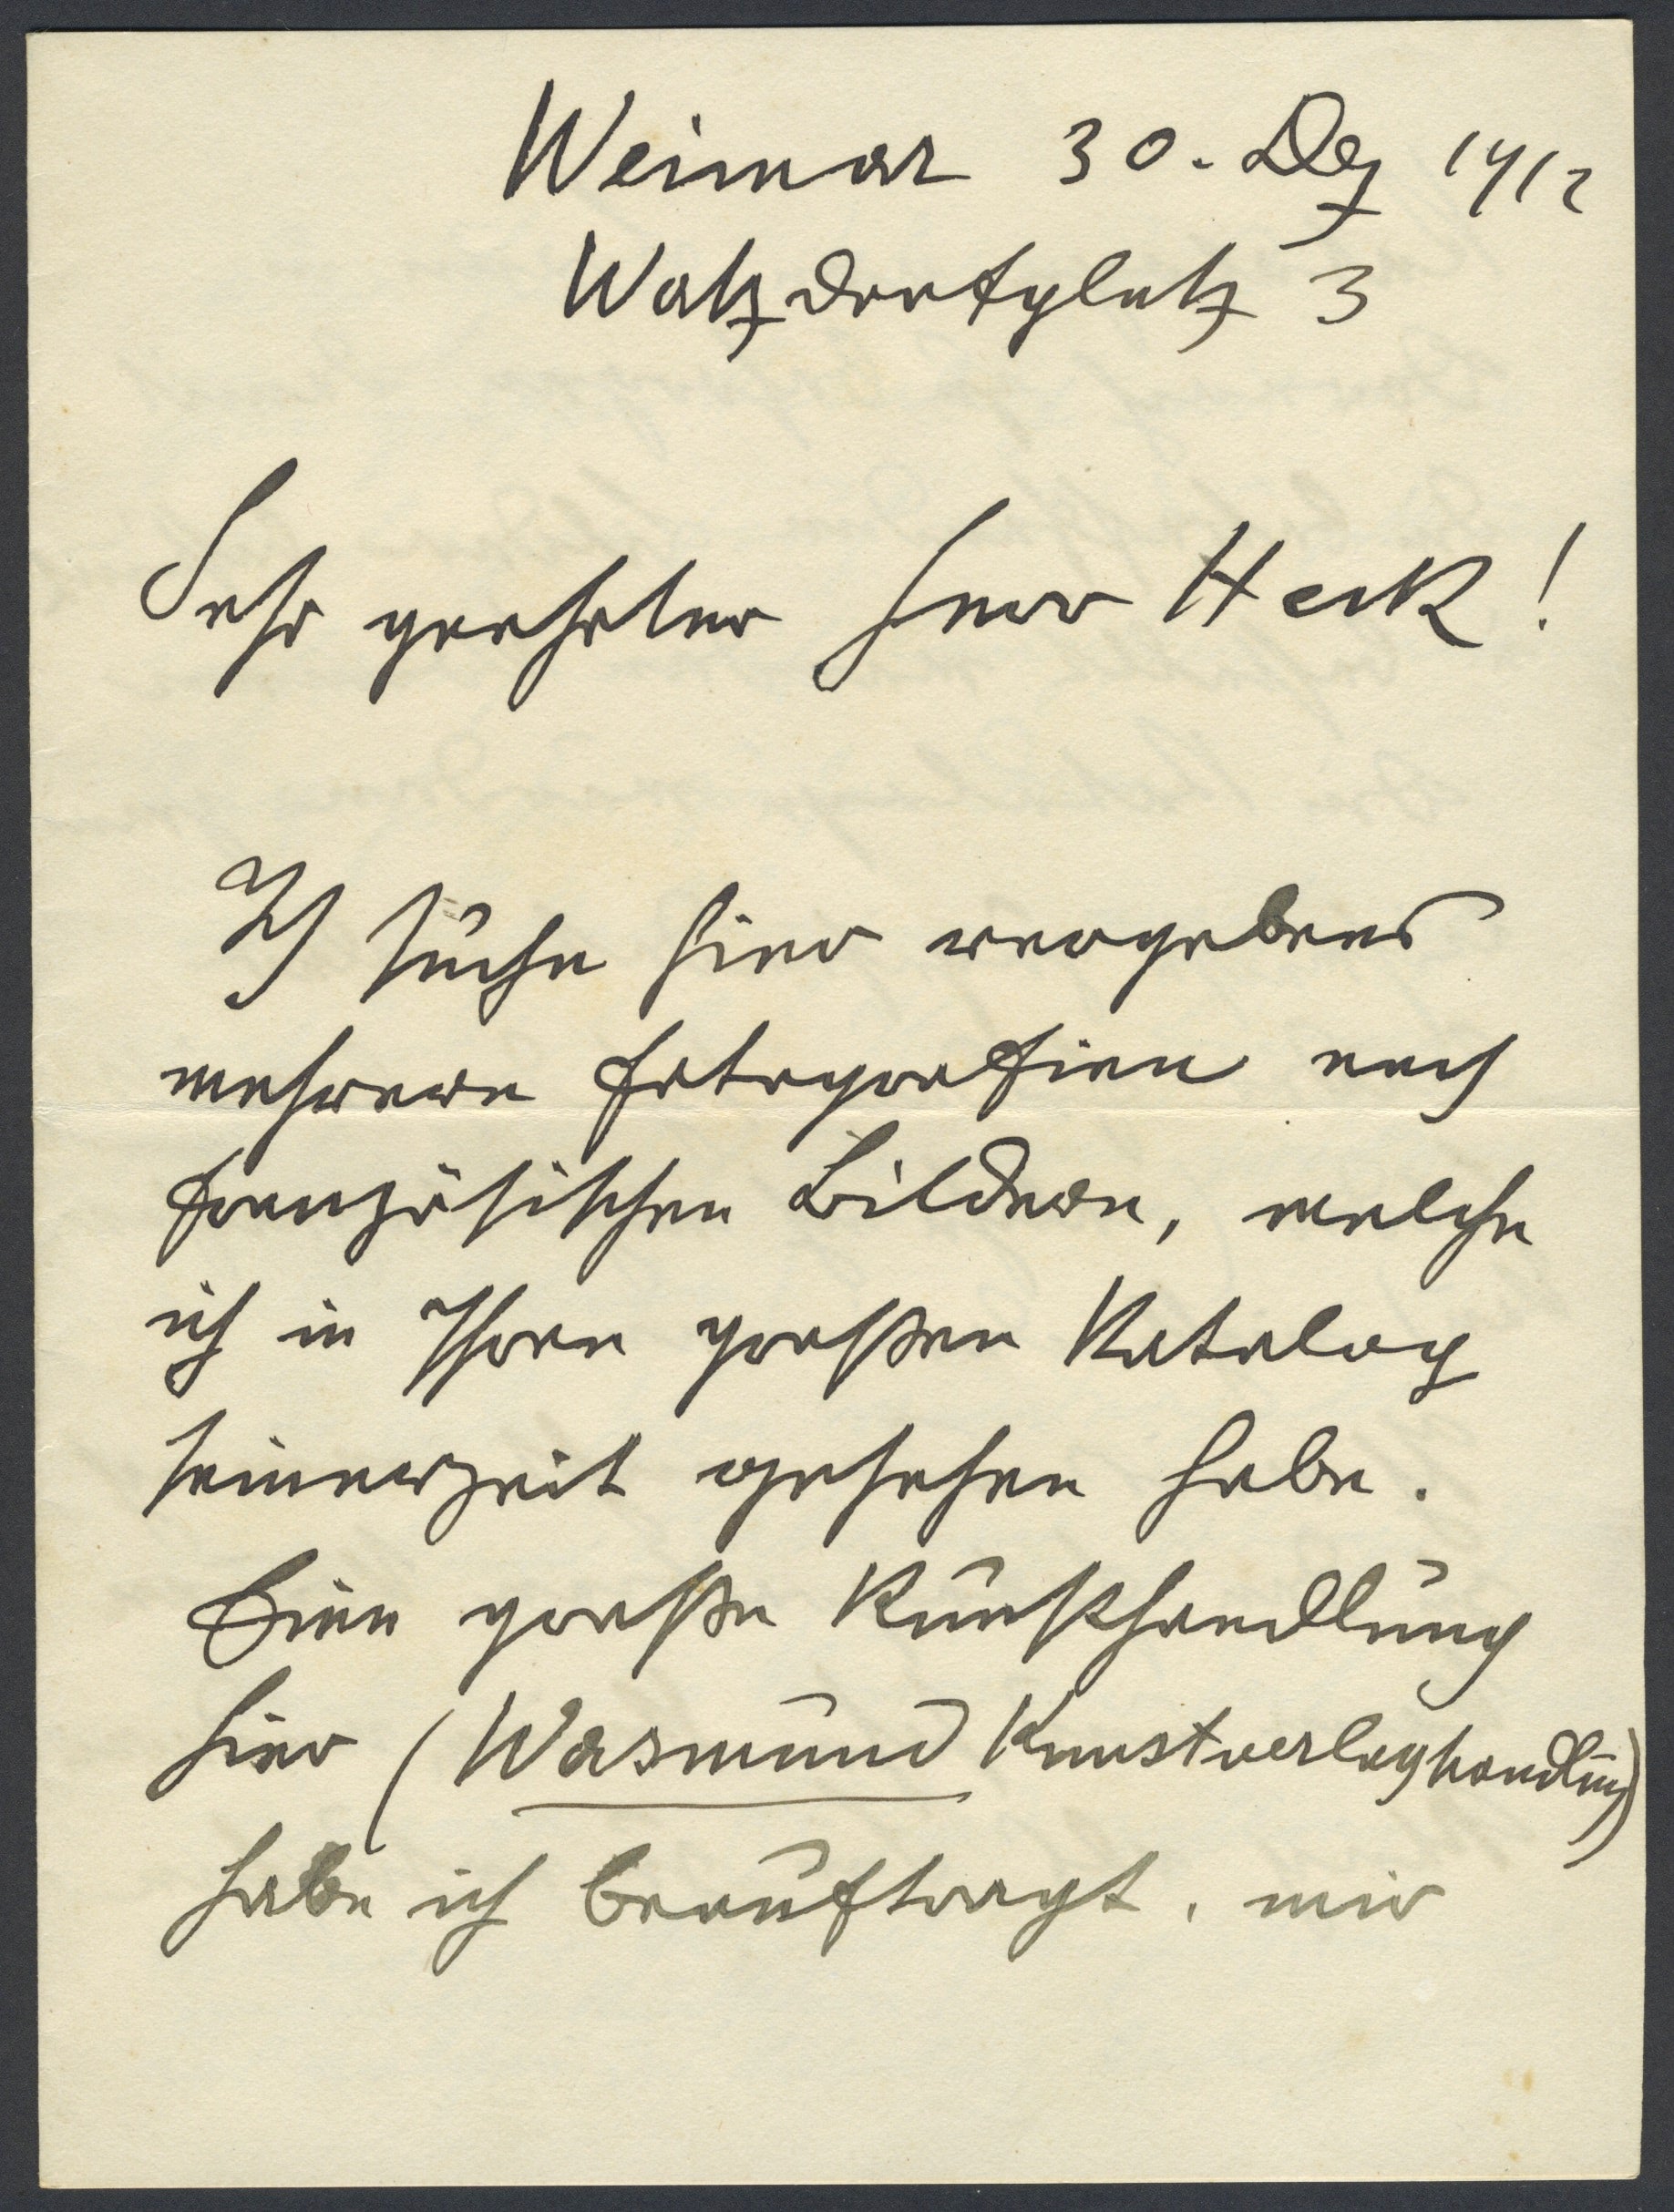 Weimar 30. Dez 1912
Watzdorfplatz 3
Sehr geehrter Herr Heck!
Ich suche hier vergebens
mehrere Fotografien nach
französischen Bildern, welche
ich in Ihren großen Katalog
seinerzeit gesehen habe.
Eine große Kunsthandlung
hier (Wasmund Kunstverlaghandlung)
habe ich beauftragt, mir